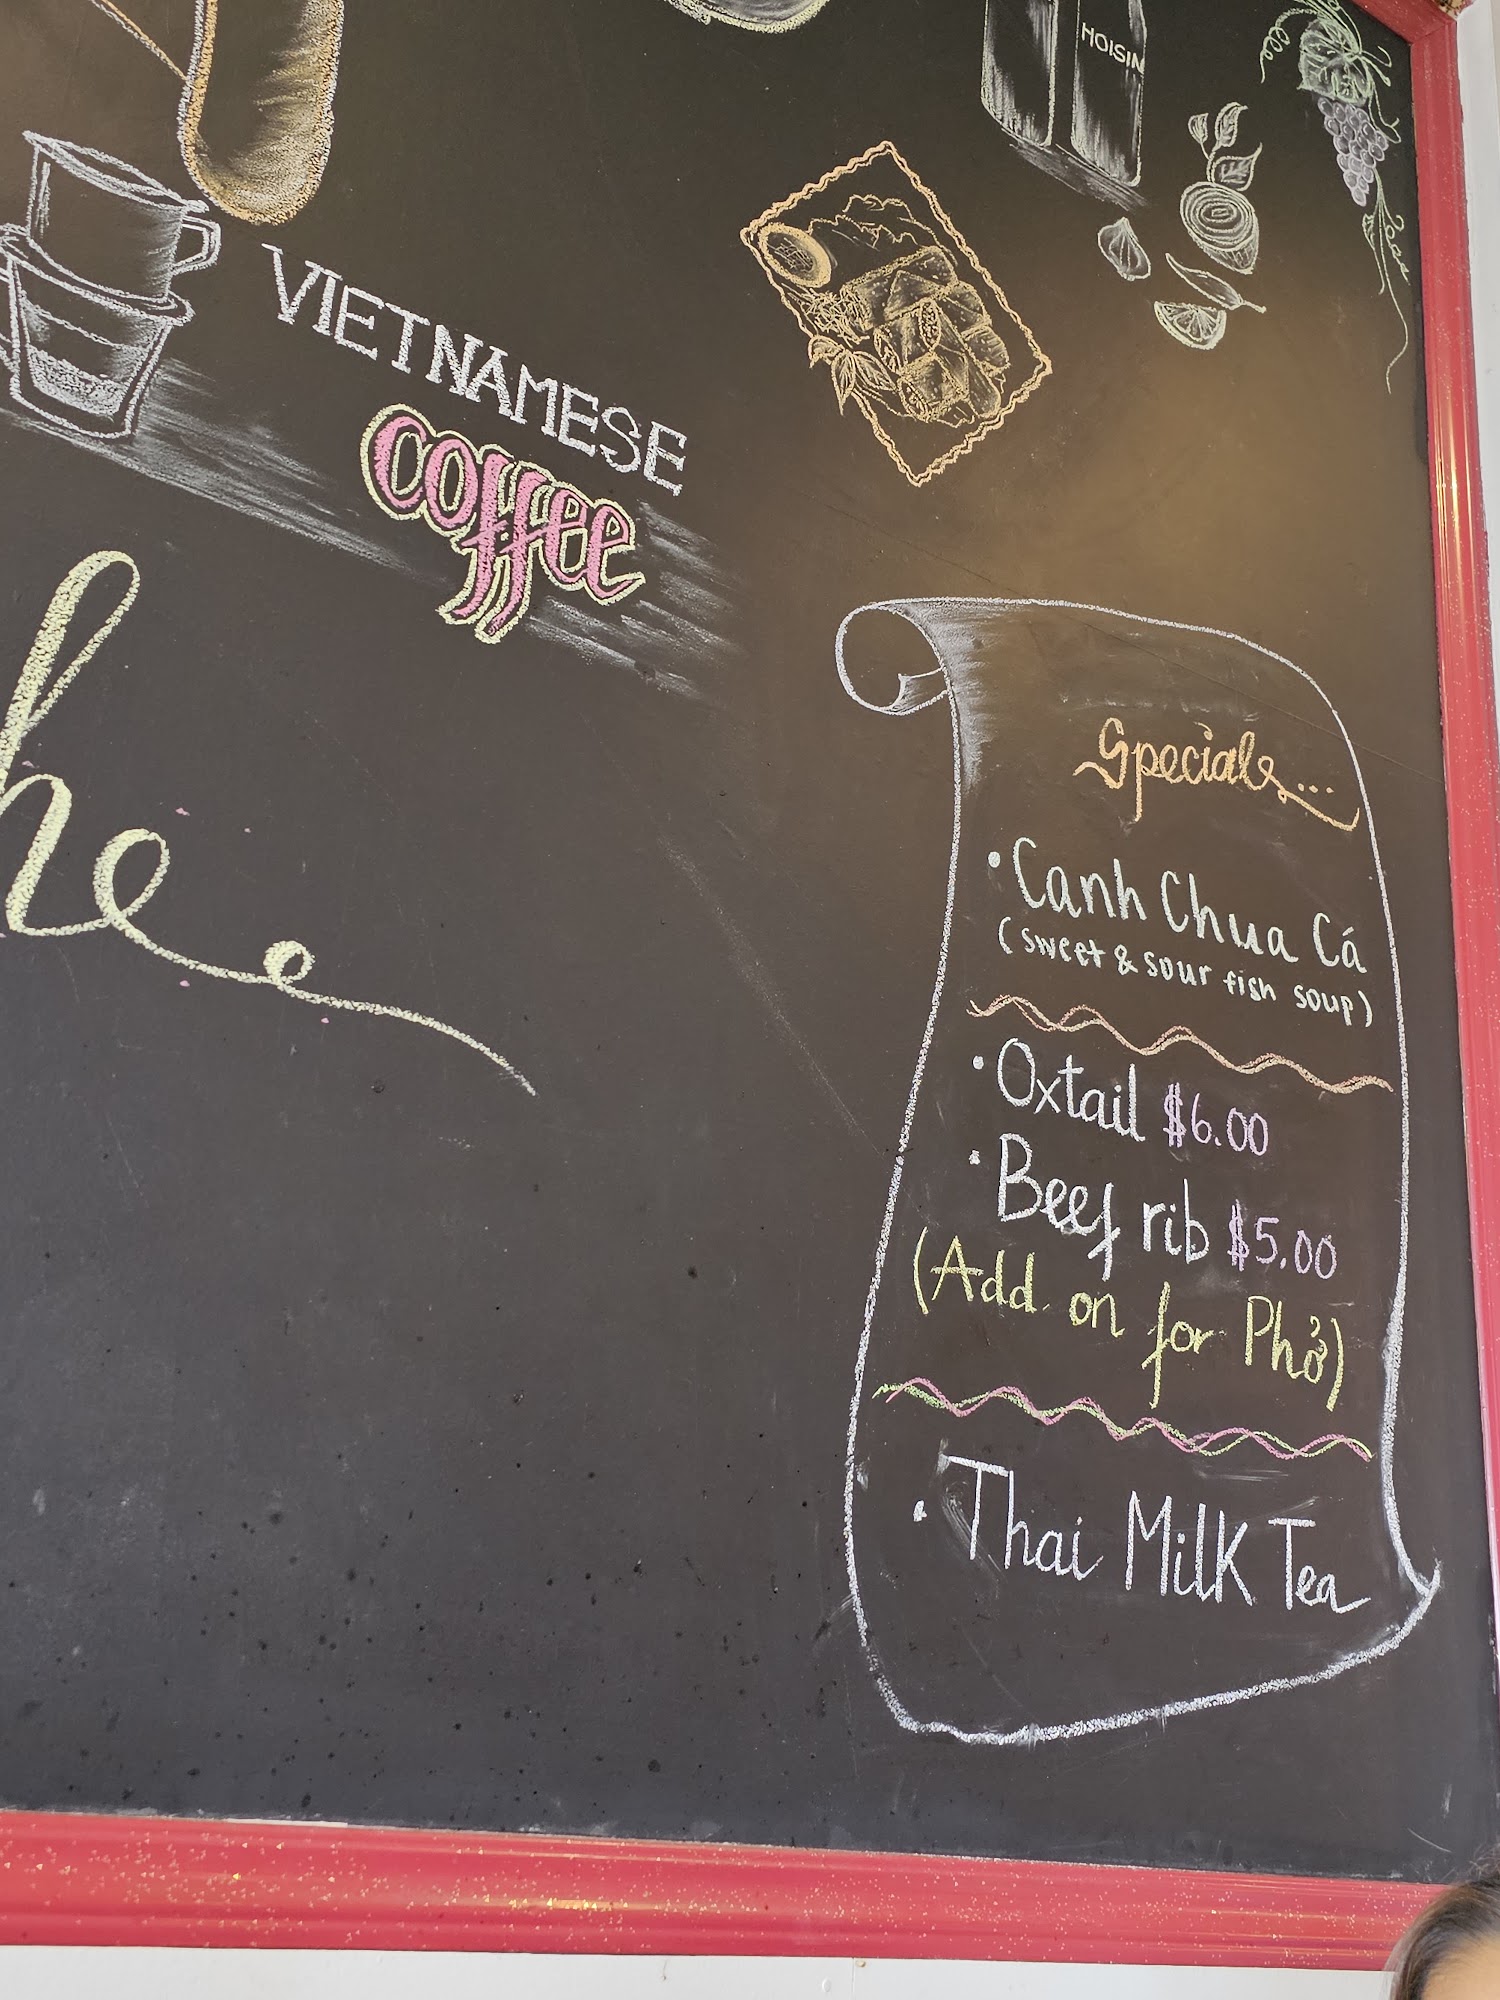 HOISIN
VIETNAMESE
coffee
he
Specials...
• Canh Chua Cá
(sweet & sour fish soup)
• Oxtail $6.00
• Beef rib $5.00
(Add on for Phở)
• Thai Milk Tea